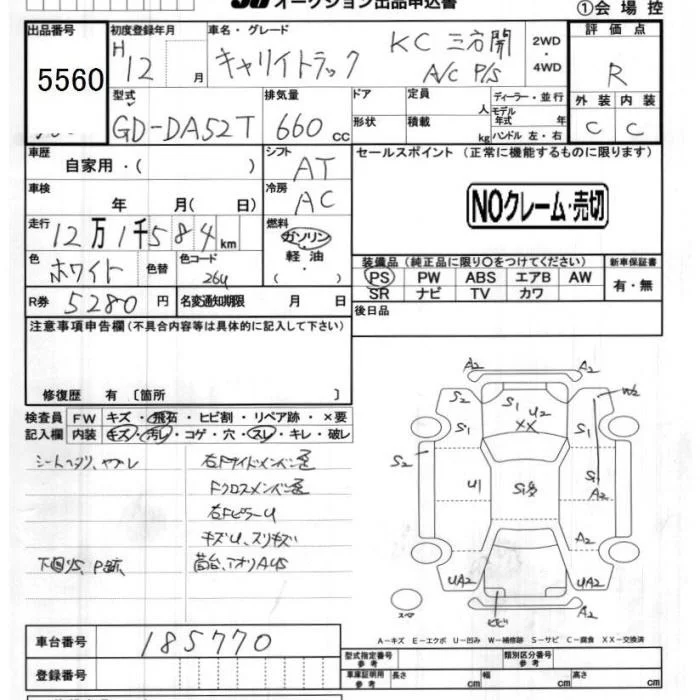 オークション出品申込書
①会場控
出品番号 初度登録年月 車名・グレード 評価点
5560 H12月 キャリイトラック KC 三方開 A/C P/S 2WD・4WD R
型式 排気量 ドア 定員 人 ディーラー・並行 外装 内装
GD-DA52T 660cc 形状 積載 kg モデル年式 年 ハンドル 左・右 C C
車歴 自家用・( ) シフト AT セールスポイント (正常に機能するものに限ります)
車検 年 月( 日) 冷房 AC NOクレーム・売切
走行 12万1千584km 燃料 ガソリン・軽油・( )
色 ホワイト 色替 色コード 264
装備品 (純正品に限り○をつけてください) 新車保証書
PS PW ABS エアB AW 有・無
SR ナビ TV カワ
R券 5280円 名変通知期限 月 日 後日品
注意事項申告欄(不具合内容等は具体的に記入して下さい)
修復歴 有 〔箇所 〕
検査員 FW キズ・飛石・ヒビ割・リペア跡・×要
記入欄 内装 キズ・汚レ・コゲ・穴・スレ・キレ・破レ
シートヘタリ、ヤブレ 右Fサイドメンバー歪
Fクロスメンバー歪
右FピラーU
キズU、スリキズ
下回りS、P錆、 荷台、アオリAUS
A2
S2 S1 U2 XX W2
S1 S1
S2 U1 S1多 S1 A2
A2
UA2 UA2
スペア ヒビ A2
A-キズ E-エクボ U-凹み W-補修跡 S-サビ C-腐食 XX-交換済
車台番号 185770
登録番号
型式指定番号 参考 類別区分番号 参考
車庫証明用 参考 長さ cm 幅 cm 高さ cm